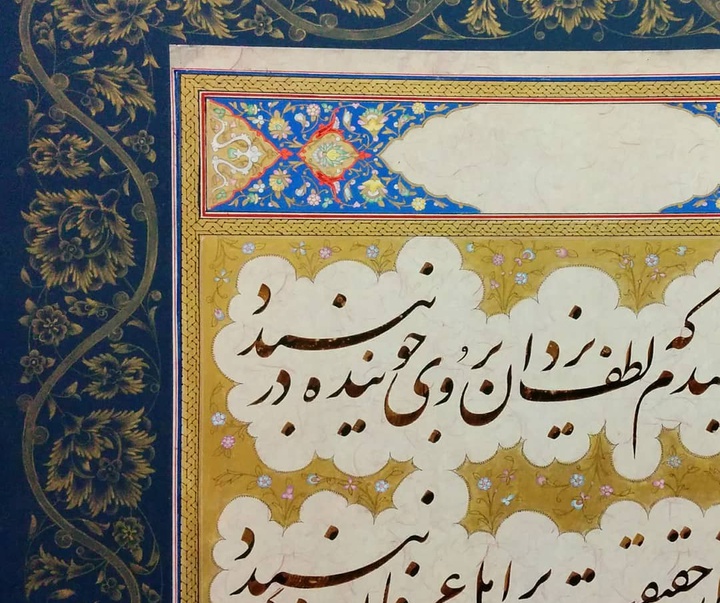 که لطف یزدان بر روی جوینده در نبندد
حقیقت بر اهل نبندد